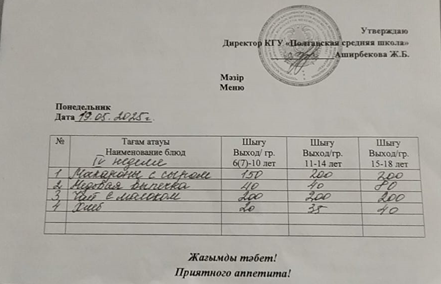 Утверждаю
Директор КГУ «Полтавская средняя школа»
Аширбекова Ж.Б.
Мәзір
Меню
Понедельник
Дата 19.05.2025г.
№ Тағам атауы Наименование блюд Шығу Выход/ гр. 6(7)-10 лет Шығу Выход/гр. 11-14 лет Шығу Выход/ гр. 15-18 лет
IV неделя
1 Макароны с сыром 150 200 200
2 Медовая выпечка 40 40 80
3 Чай с молоком 200 200 200
4 Хлеб 20 35 40
Жағымды тәбет!
Приятного аппетита!